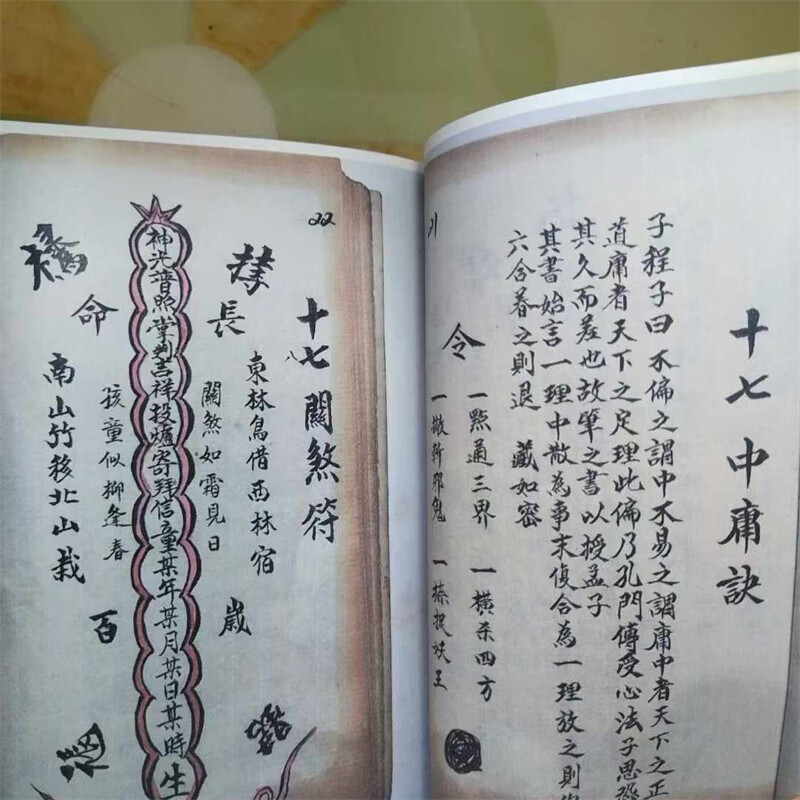 十七中庸訣
子程子曰不偏之謂中不易之謂庸中者天下之正
道庸者天下之定理此偏乃孔門傳受心法子思恐
其久而差也故筆之書以授孟子
其書始言一理中散為事末復合為一理放之則
六合卷之則退 藏如密
令
一點通三界 一橫杀四方
一撇斬邪鬼 一捺捉妖王
21
22
十七關煞符
八
東林鳥借西林宿
關煞如霜見日
長
歲
神光普照掌判吉祥投爐寄拜信童某年某月某日某時生
孩童似柳逢春
命
百
南山竹移北山栽